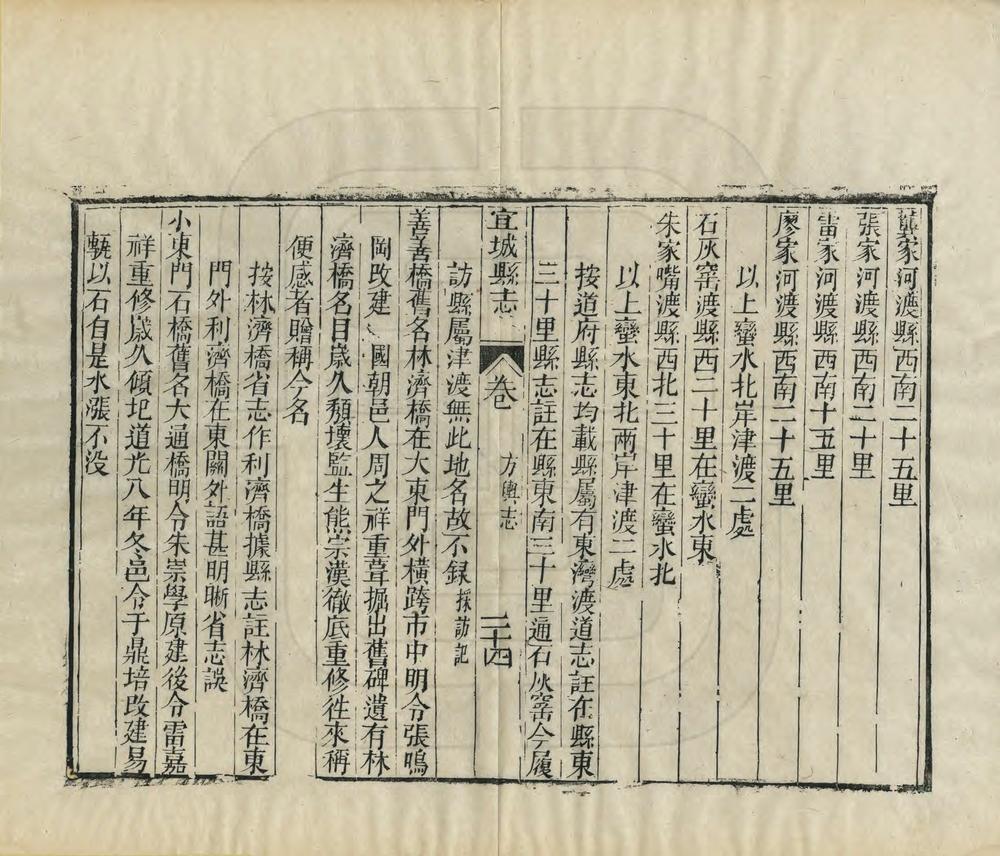 龔家河渡縣西南二十五里
張家河渡縣西南二十里
雷家河渡縣西南十五里
廖家河渡縣西南二十五里
以上蠻水北岸津渡二處
石灰窑渡縣西二十里在蠻水東
朱家嘴渡縣西北三十里在蠻水北
以上蠻水東北兩岸津渡二處
按道府縣志均載縣屬有東灣渡道志註在縣東
三十里縣志註在縣東南三十里通石灰窑今履
宜城縣志 卷 方輿志 二十四
訪縣屬津渡無此地名故不録採訪記
善善橋舊名林濟橋在大東門外橫跨市中明令張鳴
岡改建 國朝邑人周之祥重葺掘出舊碑遺有林
濟橋名目歲久頽壞監生熊宗漢徹底重修徃來稱
便感者贈稱今名
按林濟橋省志作利濟橋據縣志註林濟橋在東
門外利濟橋在東關外語甚明晰省志誤
小東門石橋舊名大通橋明令朱崇學原建後令雷嘉
祥重修歲久傾圯道光八年冬邑令于鼎培改建易
甎以石自是水漲不没